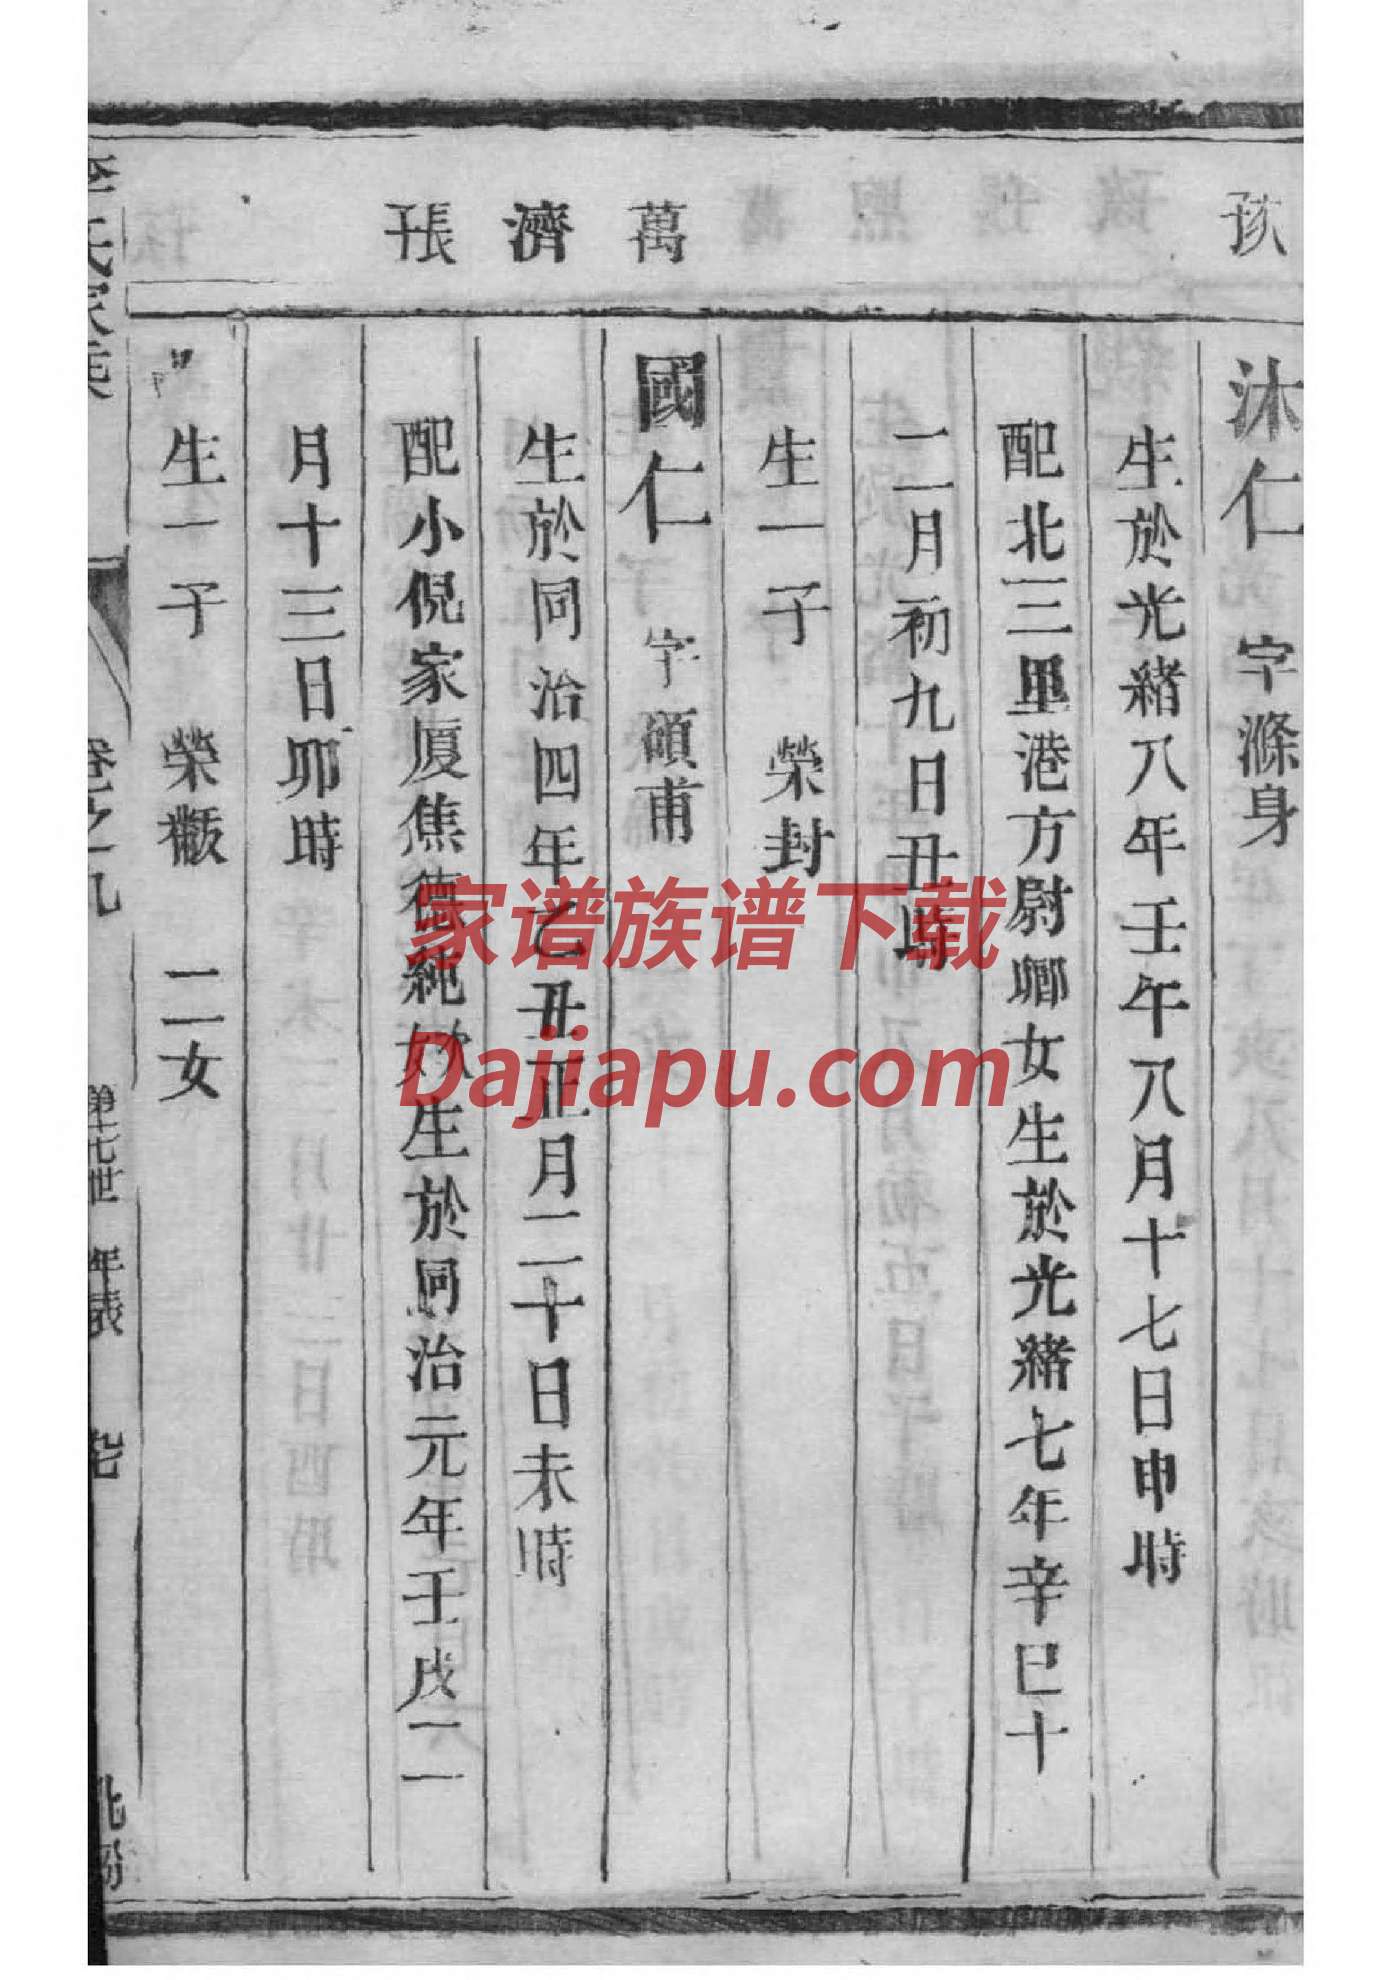 孩
沐仁 字滌身
生於光緒八年壬午八月十七日申時
配北三里港方尉卿女生於光緒七年辛巳十
二月初九日丑時
生一子 榮封
萬
國仁 字碩甫
濟
生於同治四年乙丑正月二十日未時
張
配小倪家厦焦德純女生於同治元年壬戌二
月十三日卯時
生一子 榮黻 二女
李氏家乘
卷之九
第七世 年表
家谱族谱下载
Dajiapu.com